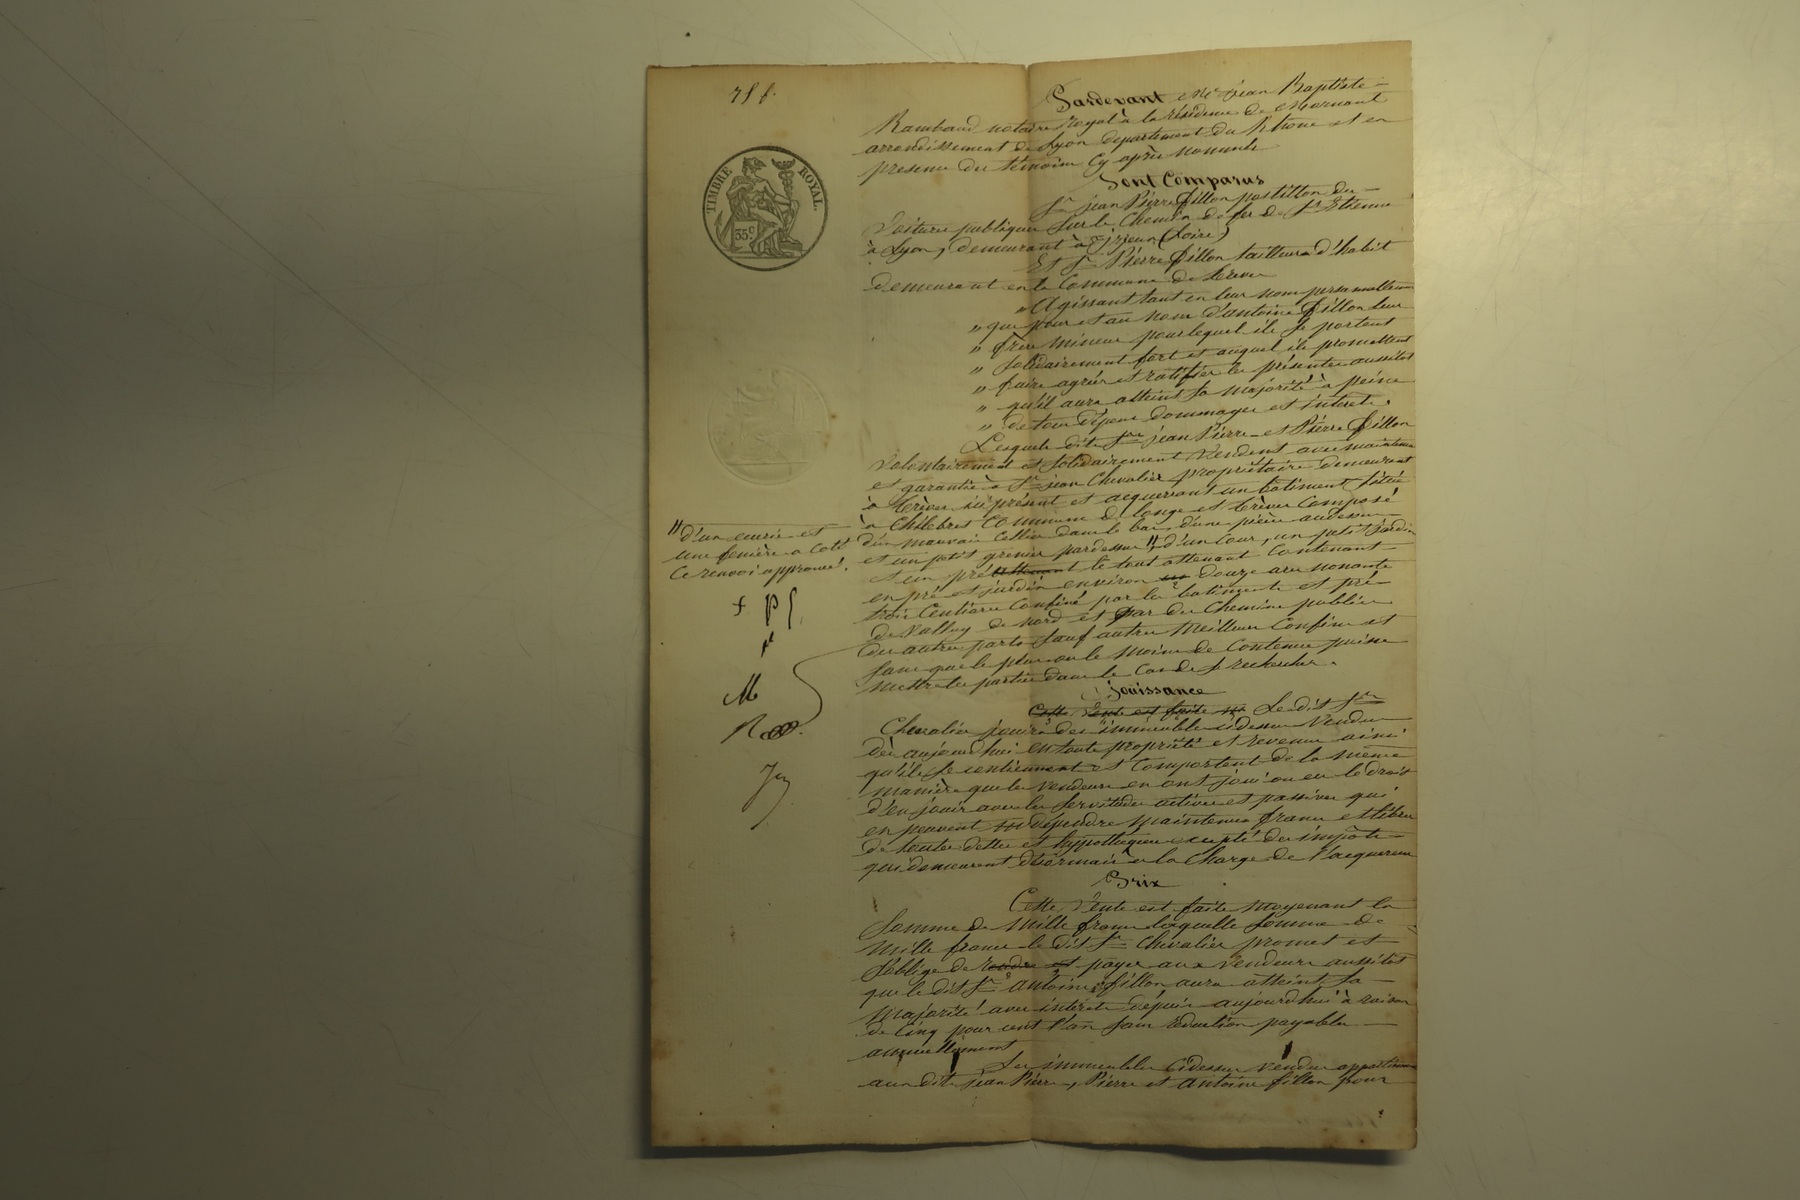 751.
TIMBRE ROYAL.
35 c
Pardevant Me jean Baptiste
Rambaud notaire royal à la résidence de Mornant
arrondissement de Lyon departement du Rhone et en
presence des témoins cy après nommés
Sont Comparus
Sr jean Pierre fillon postillon des
Voitures publiques sur le Chemin de fer de St Etienne
à Lyon, demeurant à (Loire)
Et Sr Pierre fillon tailleur d'habit
demeurant en la Commune de trèves
" Agissant tant en leur nom personnellement
" que pour et au nom d'antoine fillon leur
" frère mineur pour lequel ils se portent
" solidairement fort et auquel ils promettent
" faire agréer et ratifier les présentes aussitôt
" qu'il aura atteint sa majorité à peine
" de tous dépens dommages et interets.
Lesquels dits Srs jean Pierre et Pierre fillon
volontairement et solidairement Vendent avec maintenue
et garantie à Sr jean Chevalier propriétaire demeurant
à trèves ici présent et acquerant un batiment situé
à Chillebret Commune de longes et trèves Composé
d'un mauvais Cellier dans le bas d'une pièce au dessus
et un petit grenier par dessus " d'un Cour, un petit jardin
et un pré attenant le tout attenant Contenant
en pré et jardin environ douze ares nonante
trois Centiares Confiné par les batiments et pré
de Valluy de nord et par des Chemins publics
des autres parts sauf autres Meilleurs Confins et
sans que le plus ou le moins de Contenue puisse
mettre les parties dans le Cas de se rechercher.
" d'un ecurie et
une feniere a Coté
Ce renvoi approuvé.
f P f
M
R
Jouissance
Cette Vente est faite Le dit Sr
Chevalier jouira des immeubles cidessus Vendus
dès aujourdhui en toute propriété et revenus ainsi
qu'ils se contiennent et Comportent de la même
manière que les Vendeurs en ont joui ou eu le droit
d'en jouir avec les servitudes actives et passives qui
en peuvent dépendre maintenus francs et libres
de toutes dettes et hypothèques excepté des impôts
qui demeurent désormais a la Charge de l'acquereur
Prix
Cette Vente est faite Moyenant la
Somme de Mille francs laquelle Somme de
Mille francs le dit Sr Chevalier promet et
s'oblige de rendre et payer aux Vendeurs aussitot
que le dit Sr antoine fillon aura atteint sa
Majorité avec intérêts dépuis aujourdhui à raison
de Cinq pour cent l'an sans réduction payables
annuellement
Les immeubles Cidessus Vendus appartiennent
aux dits jean Pierre, Pierre et antoine fillon pour